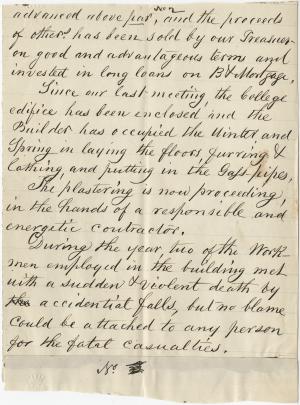 advanced above par, and the proceeds
of others has been sold by our Treasurer
on good and advantageous terms and
invested in long loans on B & Mortgage.
Since our last meeting the College
edifice has been enclosed and the
Builder has occupied the Winter and
Spring in laying the floors, furring &
lathing and putting in the Gass pipes.
The plastering is now proceeding
in the hands of a responsible and
energetic contractor.
During the year two of the Work-
men employed in the building met
with a sudden & violent death by
the accidential falls, but no blame
could be attached to any person
for the fatal casualties.
No